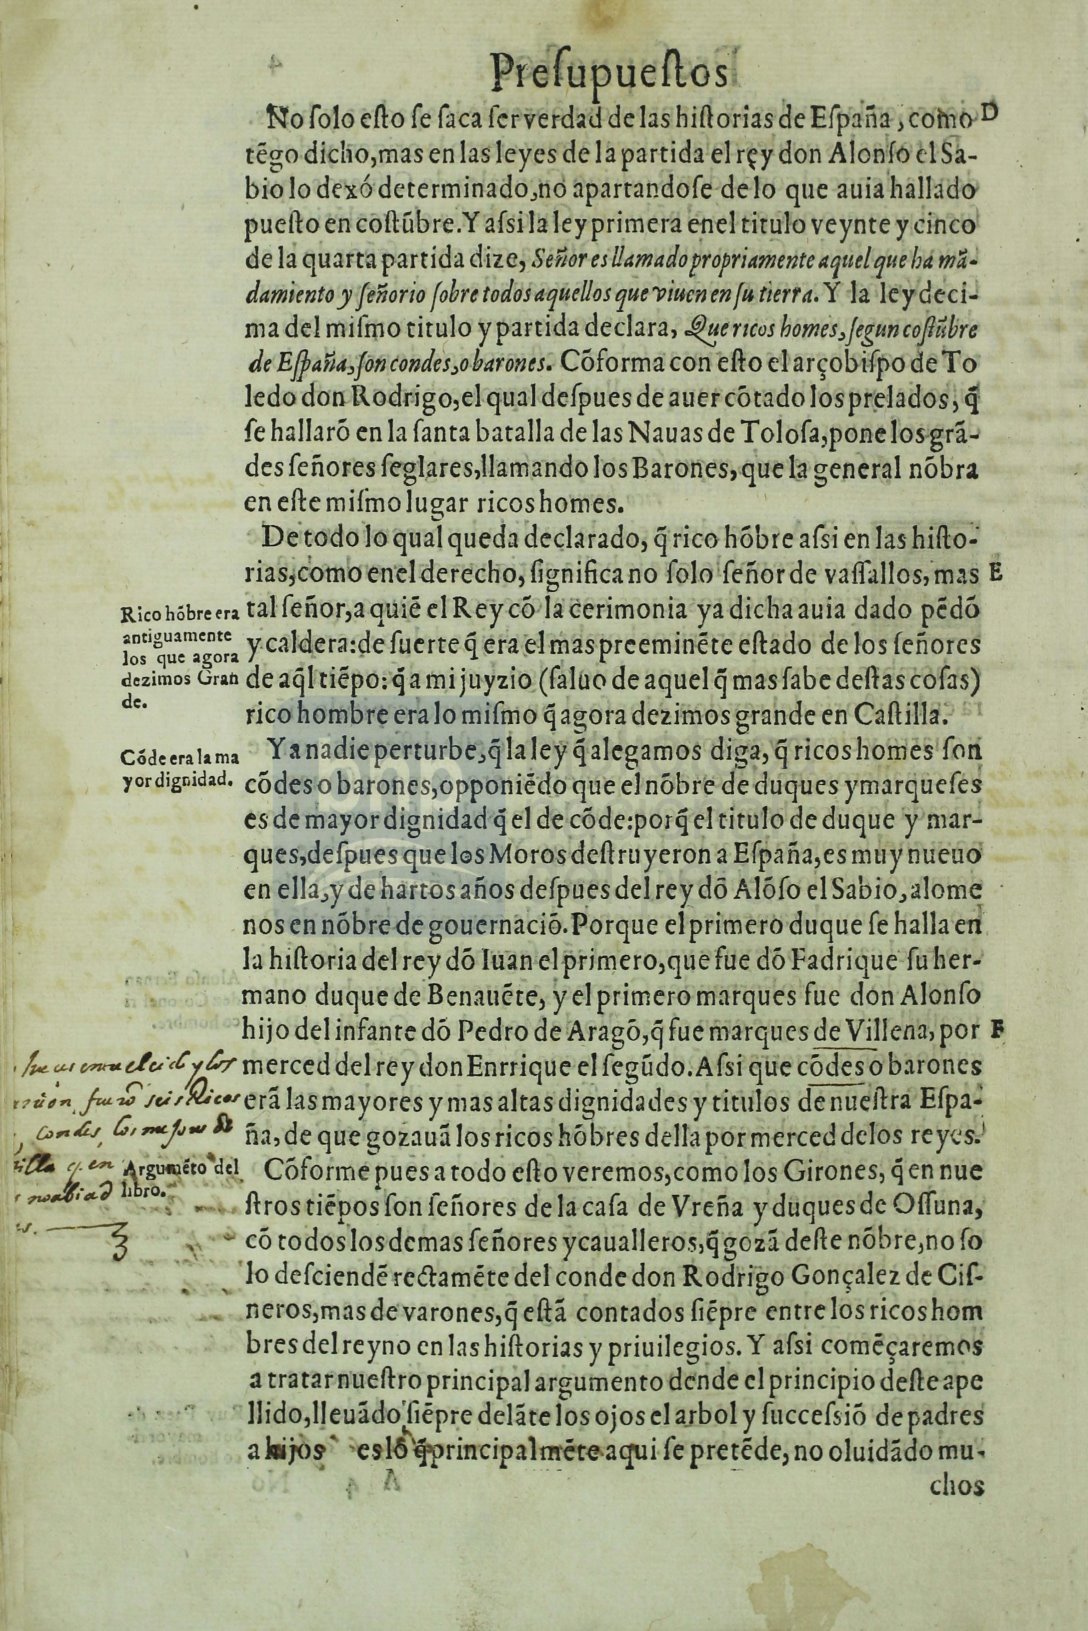 Presupuestos
No solo esto se saca ser verdad de las historias de España, como D
tēgo dicho, mas en las leyes de la partida el rey don Alonso el Sa-
bio lo dexó determinado, no apartandose de lo que auia hallado
puesto en costūbre. Y assi la ley primera enel titulo veynte y cinco
de la quarta partida dize, Señor es llamado propriamente aquel que ha mā-
damiento y señorio sobre todos aquellos que viuen en su tierra. Y la ley deci-
ma del mismo titulo y partida declara, Que ricos homes, segun costūbre
de España, son condes, o barones. Cōforma con esto el arçobispo de To
ledo don Rodrigo, el qual despues de auer cōtado los prelados, q̄
se hallarō en la santa batalla de las Nauas de Tolosa, pone los grā-
des señores seglares, llamando los Barones, que la general nōbra
en este mismo lugar ricos homes.
De todo lo qual queda declarado, q̄ rico hōbre assi en las histo-
rias, como enel derecho, significa no solo señor de vassallos, mas E
Rico hōbre era
antiguamente
los que agora
dezimos Gran
de.
tal señor, a quiē el Rey cō la cerimonia ya dicha auia dado pēdō
y caldera: de suerte q̄ era el mas preeminēte estado de los señores
de aq̄l tiēpo: q̄ a mi juyzio (saluo de aquel q̄ mas sabe destas cosas)
rico hombre era lo mismo q̄ agora dezimos grande en Castilla.
Cōde era la ma
yor dignidad.
Y a nadie perturbe, q̄ la ley q̄ alegamos diga, q̄ ricos homes son
cōdes o barones, opponiēdo que el nōbre de duques y marqueses
es de mayor dignidad q̄ el de cōde: porq̄ el titulo de duque y mar-
ques, despues que los Moros destruyeron a España, es muy nueuo
en ella, y de hartos años despues del rey dō Alōso el Sabio, alome
nos en nōbre de gouernaciō. Porque el primero duque se halla en
la historia del rey dō Iuan el primero, que fue dō Fadrique su her-
mano duque de Benauēte, y el primero marques fue don Alonso
hijo del infante dō Pedro de Aragō, q̄ fue marques de Villena, por F
merced del rey don Enrrique el segūdo. Assi que cōdes o barones
erā las mayores y mas altas dignidades y titulos de nuestra Espa-
ña, de que gozauā los ricos hōbres della por merced delos reyes.
Argumēto del
libro.
Cōforme pues a todo esto veremos, como los Girones, q̄ en nue
stros tiēpos son señores de la casa de Vreña y duques de Ossuna,
cō todos los demas señores y caualleros, q̄ gozā deste nōbre, no so
lo desciendē rectamēte del conde don Rodrigo Gonçalez de Cis-
neros, mas de varones, q̄ estā contados siēpre entre los ricos hom
bres del reyno en las historias y priuilegios. Y assi comēçaremos
a tratar nuestro principal argumento dende el principio deste ape
llido, lleuādo siēpre delāte los ojos el arbol y successiō de padres
a hijos es lo q̄ principalmēte aqui se pretēde, no oluidādo mu-
chos